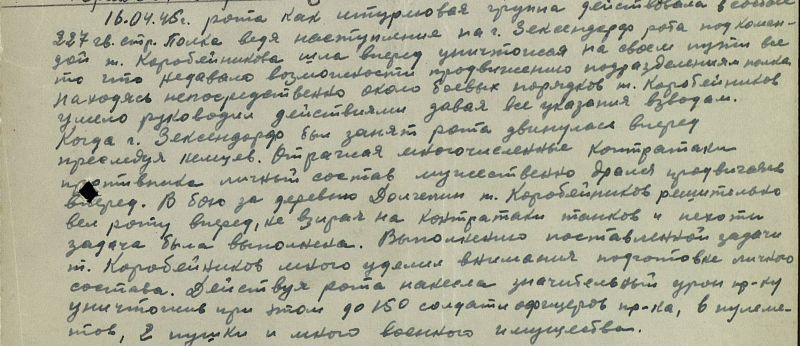 16.04.45г. рота как штурмовая группа действовала в составе
227 гв. стр. Полка ведя наступление на г. Зексендорф рота под коман-
дой т. Коробейникова шла вперед уничтожая на своем пути все
то что недавало возможности продвижению подразделениям полка.
Находясь непосредственно около боевых порядков т. Коробейников
умело руководил действиями давая все указания взводам.
Когда г. Зексендорф был занят рота двинулась вперед
преследуя немцев. Отражая многочисленные контратаки
противника личный состав мужественно дрался продвигаясь
вперед. В бою за деревню Долгелин т. Коробейников решительно
вел роту вперед, не взирая на контратаки танков и пехоты
задача была выполнена. Выполнению поставленной задачи
т. Коробейников много уделил внимания подготовке личного
состава. Действуя рота нанесла значительный урон пр-ку
уничтожив при этом до 150 солдат и офицеров пр-ка, 6 пулеме-
тов, 2 пушки и много военного имущества.